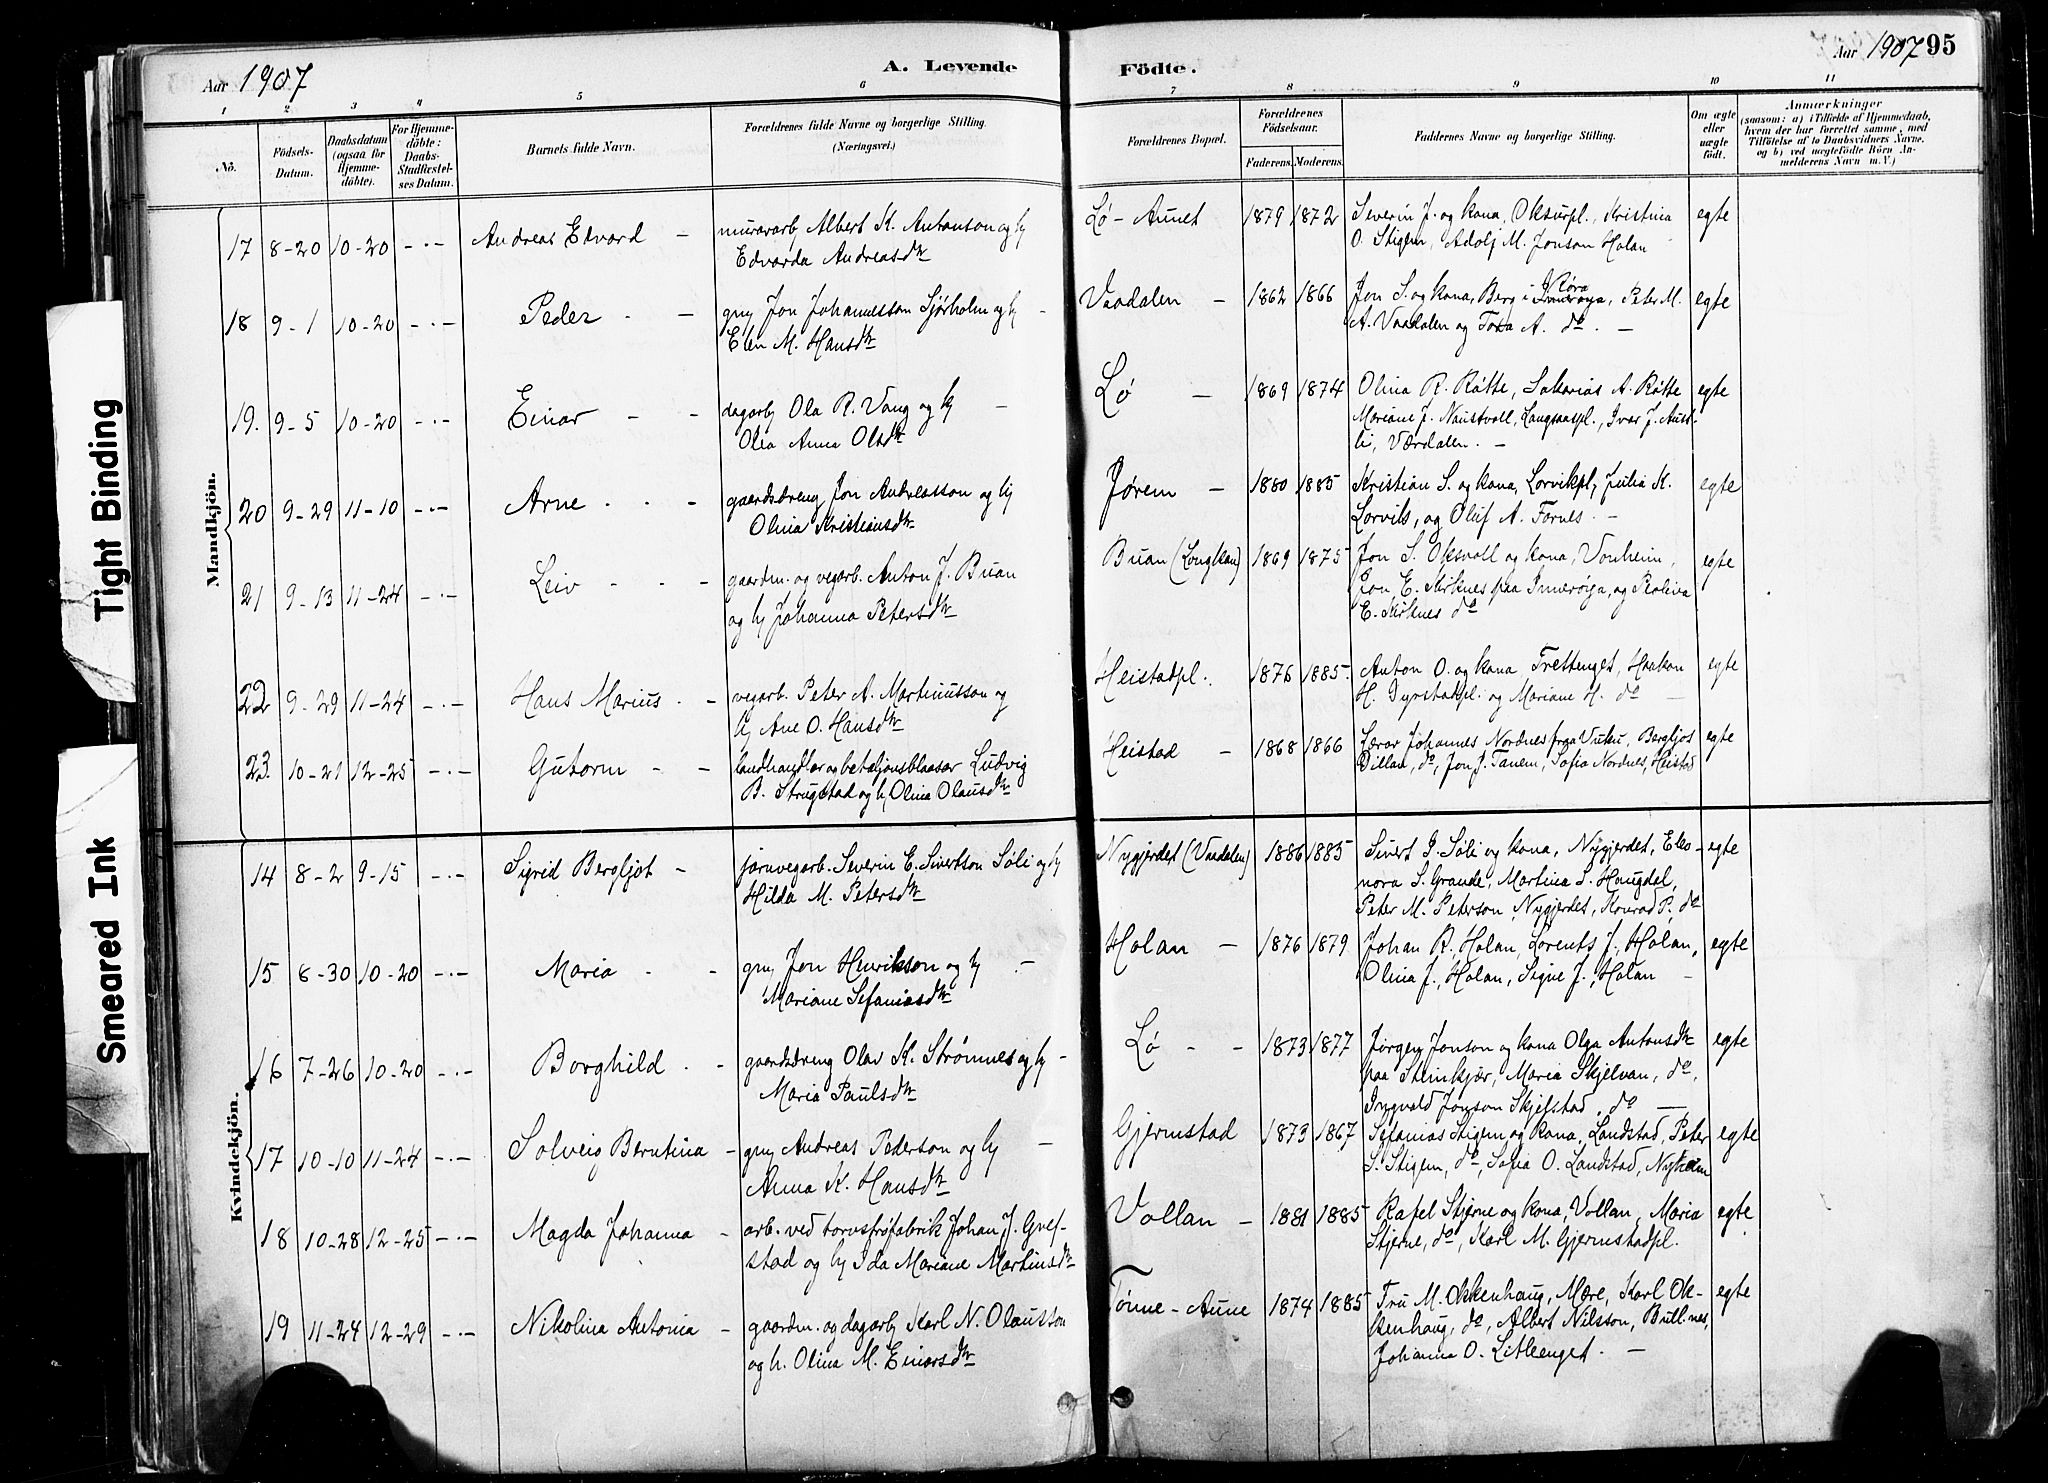 Aar 1907
A. Levende
Födte.
Aar 1907 95
1 2 3 4 5 6 7 8 9 10 11
No.
Födsels-Datum.
Daabsdatum (ogsaa for Hjemmedöbte).
For Hjemmedöbte: Daabs-Stadfæstelses Datum.
Barnets fulde Navn.
Forældrenes fulde Navne og borgerlige Stilling. (Næringsvei.)
Forældrenes Bopæl.
Forældrenes Födselsaar.
Faderens. Moderens.
Faddernes Navne og borgerlige Stilling.
Om ægte eller uægte født.
Anmærkninger
(saasom: a) i Tilfælde af Hjemmedaab, hvem der har forrettet samme, med Tilföielse af to Daabsvidners Navne, og b) ved uægtefödte Börn Anmelderens Navn m. V.)
Tight Binding
Smeared Ink
Mandkjön.
17 8-20 10-20 -.- Andreas Edvard - murararb. Albert K. Antonson og hj
Edvarda Andreasdtr
Lø-Aunet 1879 1872 Severin J. og kona, Oksurpl., Kristina
O. Stigem, Adolf M. Jonson Holan
egte
18 9-1 10-20 -.- Peder - grmj Jon Johannesson Sjørholm og hj
Elen M. Hansdtr
Vaadalen - 1862 1866 Jon S. og kona, Berg i Røra, Peter M.
A. Vaadalen og Tora A. do. -
egte
19. 9-5 10-20 -.- Einar - - dagarb Ola R. Vang og hj -
Olia Anna Olsdtr
Lø - 1869 1874 Olina R. Råtte, Sakarias A. Råtte
Mariane J. Naustvoll, Langsaaspl., Ivar J. Aust-
li, Værdalen. -
egte
20 9-29 11-10 -.- Arne - gaardsdreng Jon Andreasson og hj
Olina Kristiansdtr
Jørem - 1880 1885 Kristian S. og kona, Lorvikpl, Julia K.
Lorvik, og Oluf A. Fornes. -
egte
21 9-13 11-24 -.- Leiv - - - gaardm. og vegarb. Anton J. Buan
og hj Johanna Petersdtr
Buan (Longkan) 1869 1875 Jon S. Oksvoll og kona, Vonheim,
Jon E. Kirknes paa Inderøya, og Peoliva
E. Kirknes do
egte
22 9-29 11-24 -.- Hans Marius - vegarb. Peter A. Martinusson og
hj Ane O. Hansdtr
Heistadpl. 1876 1885. Anton O. og kona Trettenget, Haakon
H. Dyrstadpl. og Mariane H. do -
egte
23. 10-21 12-25 -.- Gutorm - - landhandlar og betaljonsblaasar Ludvig
B. Strugstad og hj Olina Olausdtr
Heistad - 1868 1866 Lærar Johannes Nordnes fraa Vuku, Bergljot
Dillan, do, Jon J. Tanem, Sofia Nordnes, Heistad
egte
Kvindekjön.
14 8-2 9-15 -.- Sigrid Bergljot - jarnvegarb. Severin E. Sivertson Søli og hj
Hilda M. Petersdtr
Nygjerdet (Vaadalen) 1886 1885 Sivert J. Søli og kona, Nygjerdet, Eleo-
nora S. Grande, Martina S. Haugdal,
Peter M. Peterson, Nygjerdet, Konrad P. do
egte
15 8-30 10-20 -.- Maria - - grmj Jon Henrikson og hj -
Mariane Sefaniasdtr
Holan - 1876 1879 Johan R. Holan, Lorents J. Holan,
Olina J. Holan, Signe J. Holan -
egte
16 7-26 10-20 -.- Borghild - gaardsdreng Olav K. Strømnes og hj -
Maria Paulsdtr
Lø - - 1873 1877 Jørgen Jonson og kona Olga Antonsdtr
paa Steinkjær, Maria Skjelvan, do,
Ingvald Jonson Skjefstad, do -
egte
17 10-10 11-24 -.- Solveig Berntina - grmj Andreas Pederson og hj -
Anna K. Hansdtr
Gjermstad 1873 1867 Sefanias Stigem og kona, Landstad, Peter
S. Stigem, do, Sofia O. Landstad, Nyheim
egte
18 10-28 12-25 -.- Magda Johanna - arb. ved torvstrøfabrik Johan J. Gref-
stad og hj Ida Mariane Martinsdtr
Vollan - 1881 1885 Rafel Stjerne og kona, Vollan, Maria
Stjerne, do, Karl M. Gjermstadpl.
egte
19 11-24 12-29 -.- Nikolina Antonia - gaardm. og dagarb Karl N. Olausson
og h. Olina M. Einarsdtr
Tønne-Aune 1874 1885 Fru M. Okkenhaug, Mære, Karl Ok-
kenhaug, do, Albert Nilsson, Bullnes,
Johanna O. Litleenget. -
egte